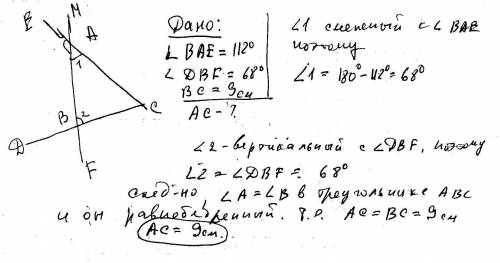 M
E
A
1
B
2
C
D
F
Дано:
∠BAE = 112°
∠DBF = 68°
BC = 9см
AC - ?
∠1 смежный с ∠BAE
поэтому
∠1 = 180° - 112° = 68°
∠2 - вертикальный с ∠DBF, поэтому
∠2 = ∠DBF = 68°
след-но, ∠A = ∠B в треугольнике ABC
и он равнобедренный. Т.о. AC = BC = 9см
AC = 9см.